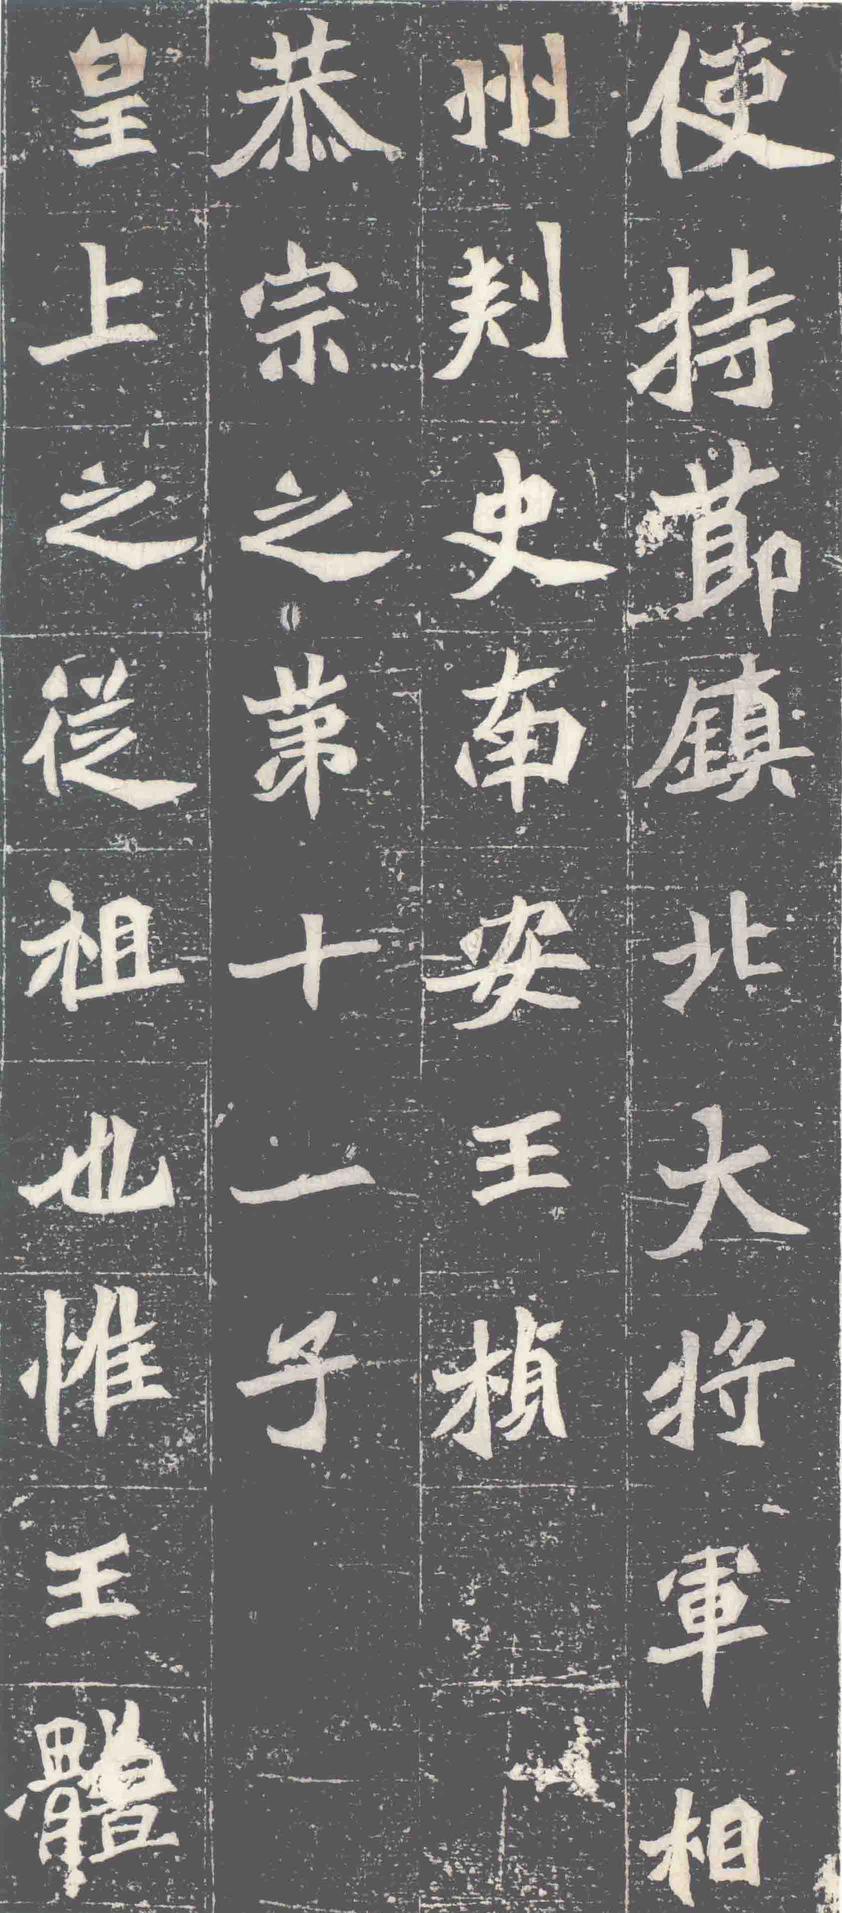 使持莭鎮北大將軍相
州刾史南安王楨
恭宗之苐十一子
皇上之從祖也惟王體